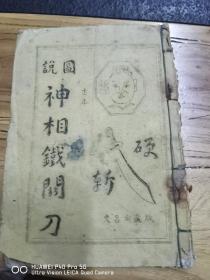 圖
說
神相鐵關刀
硬
斬
HUAWEI P40 Pro 5G
Ultra Vision LEICA Quad Camera